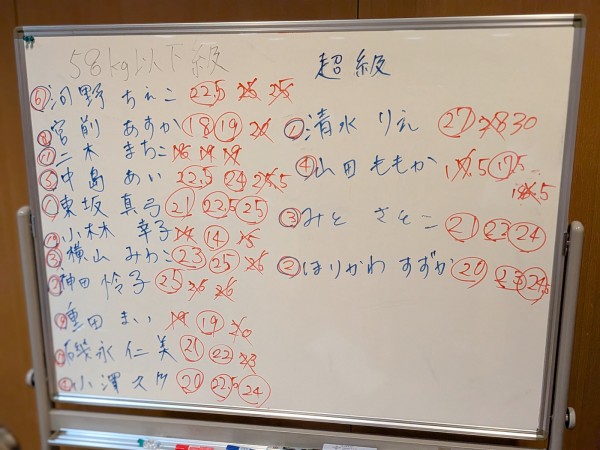 58kg以下級
⑥河野 ちえこ 22.5 25 25
⑧宮前 あすか 18 19 20
⑪二木 まちこ 16 19 19
⑤中島 あい 22.5 24 25.5
①東坂 真弓 21 22.5 25
小林 幸子 14 14 15
③横山 みわこ 23 25 26
神田 怜子 25 26 26
⑨重田 まい 19 19 20
⑦磯永 仁美 21 22 23
小澤 スタ 20 22.5 24
超級
①清水 りえ 27 28 30
④山田 ももか 17.5 17.5
18.5
③みと さとこ 21 23 24
②ほりかわ すずか 20 23 24.5